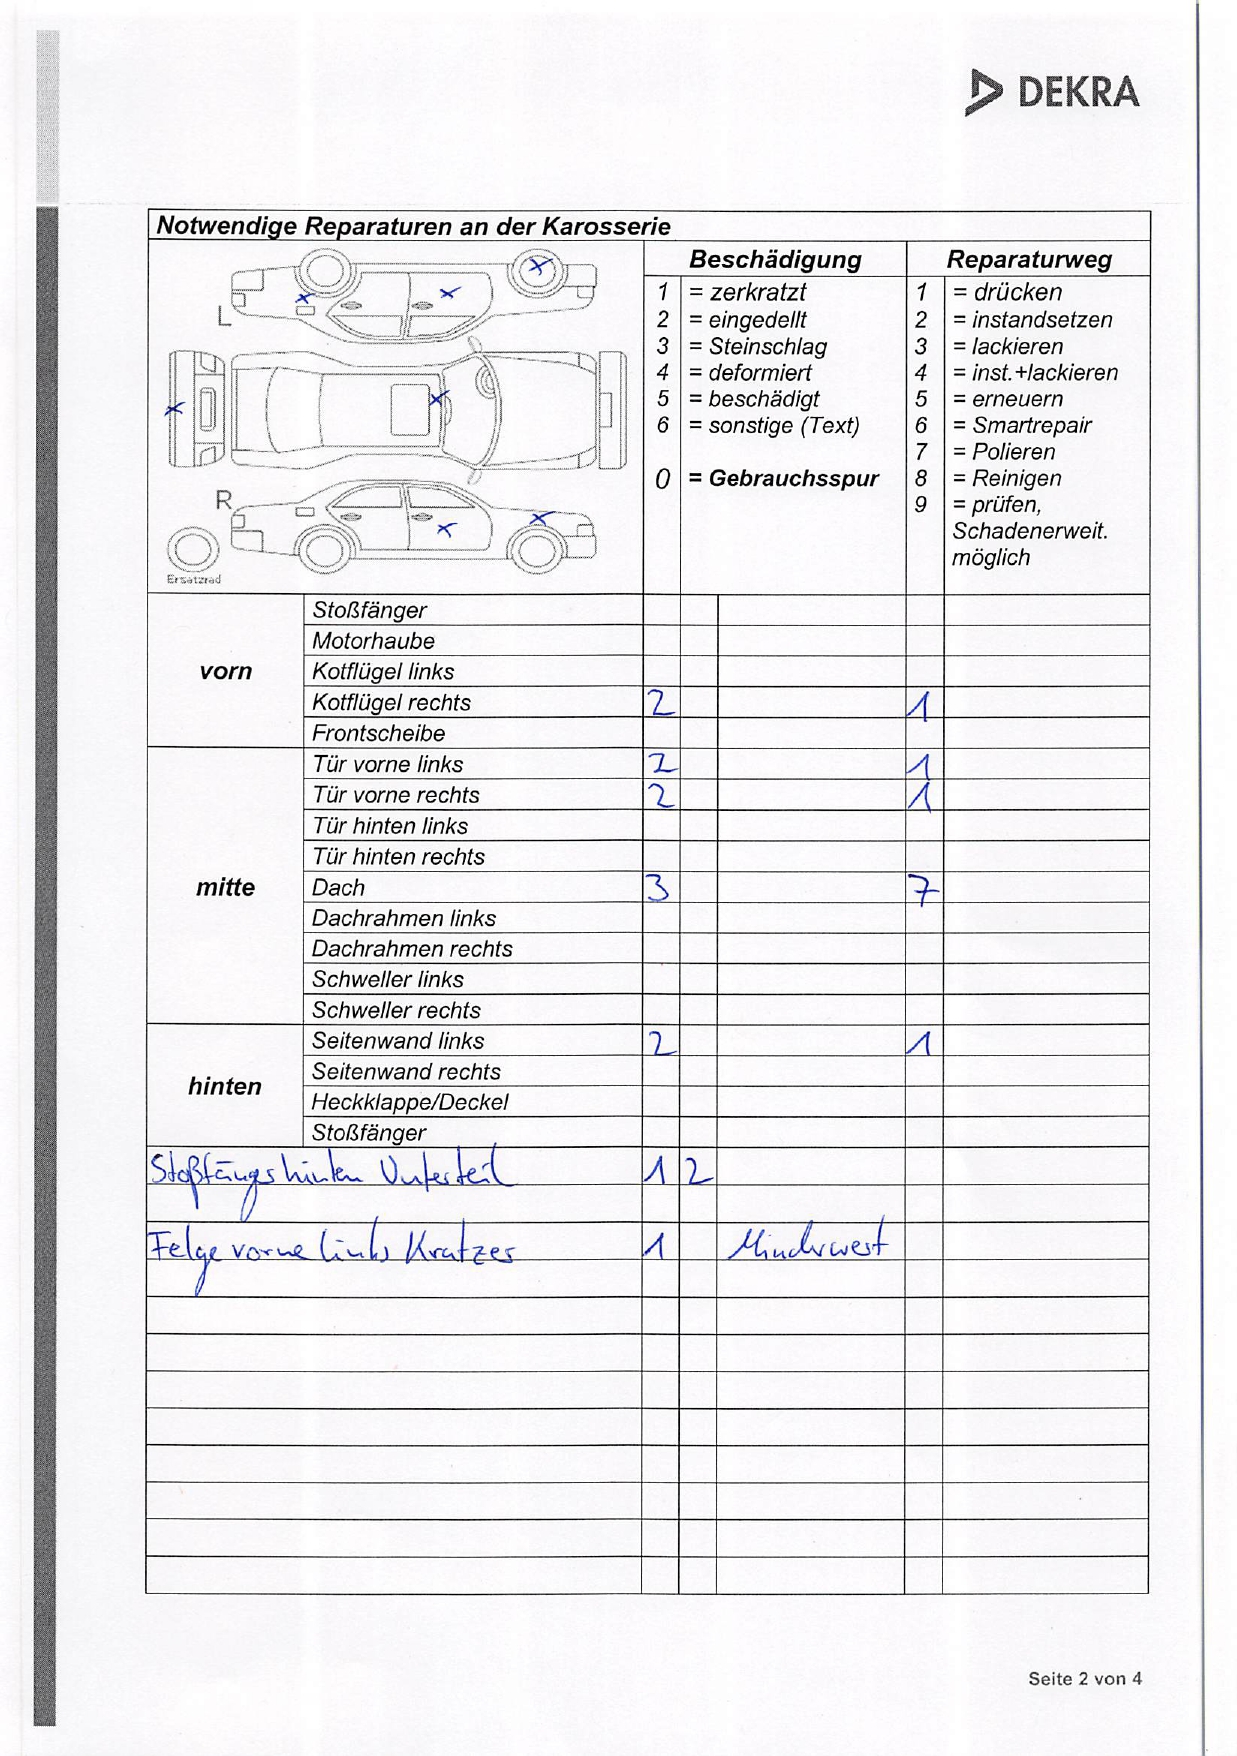 DEKRA
Notwendige Reparaturen an der Karosserie
Beschädigung Reparaturweg
1 = zerkratzt 1 = drücken
2 = eingedellt 2 = instandsetzen
3 = Steinschlag 3 = lackieren
4 = deformiert 4 = inst.+lackieren
5 = beschädigt 5 = erneuern
6 = sonstige (Text) 6 = Smartrepair
7 = Polieren
0 = Gebrauchsspur 8 = Reinigen
9 = prüfen,
Schadenerweit.
möglich
L
R
Ersatzrad
vorn
Stoßfänger
Motorhaube
Kotflügel links
Kotflügel rechts 2 1
Frontscheibe
mitte
Tür vorne links 2 1
Tür vorne rechts 2 1
Tür hinten links
Tür hinten rechts
Dach 3 7
Dachrahmen links
Dachrahmen rechts
Schweller links
Schweller rechts
hinten
Seitenwand links 2 1
Seitenwand rechts
Heckklappe/Deckel
Stoßfänger
Stoßfänger hinten Unterteil 1 2
Felge vorne links Kratzer 1 Minderwert
Seite 2 von 4